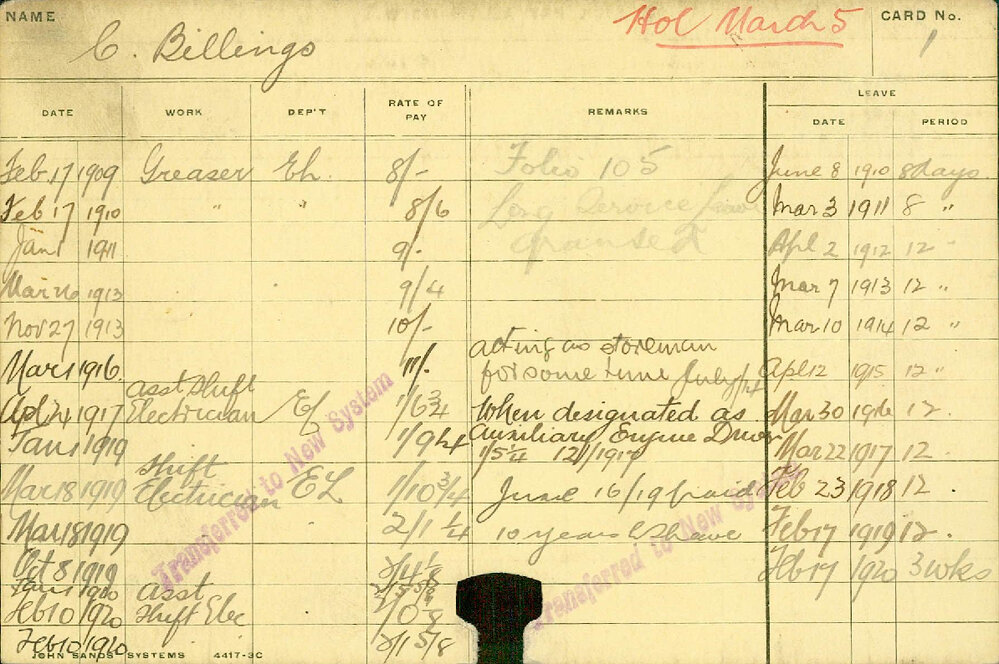 NAME C. Billings Hol March 5 CARD No. 1
DATE WORK DEP'T RATE OF PAY REMARKS LEAVE
DATE PERIOD
Feb 17 1909 Greaser Eh. 8/- Folio 105 June 8 1910 8 days.
Feb 17 1910 " " 8/6 Long Service Leave Mar 3 1911 8 "
Jan 1 1911 9/- granted Apl 2 1912 12 "
Mar 26 1913 9/4 Mar 7 1913 12 "
Nov 27 1913 10/- Mar 10 1914 12 "
acting as storeman
Mar 1 1916. 11/- for some time July/14 Apl 12 1915 12 "
asst Shift
Oct 24 1917 Electrician El 1/6 3/4 When designated as Mar 30 1916 12.
Jan 1 1919 1/9 auxiliary Engine Driver Mar 22 1917 12.
1/5 1/4 12/1/1917
Shift
Mar 18 1919 Electrician EL 1/10 3/4 June 16/19 paid Feb 23 1918 12.
Mar 18 1919 2/1 1/4 10 years L Leave Feb 17 1919 12.
Oct 8 1919 Feb 17 1920 3 wks
Jan 1 1920 asst
Feb 10 1920 Shift Elec
Feb 10 1920 2/1 5/8
Transferred to New System
Transferred to New System
JOHN SANDS SYSTEMS 4417-3C